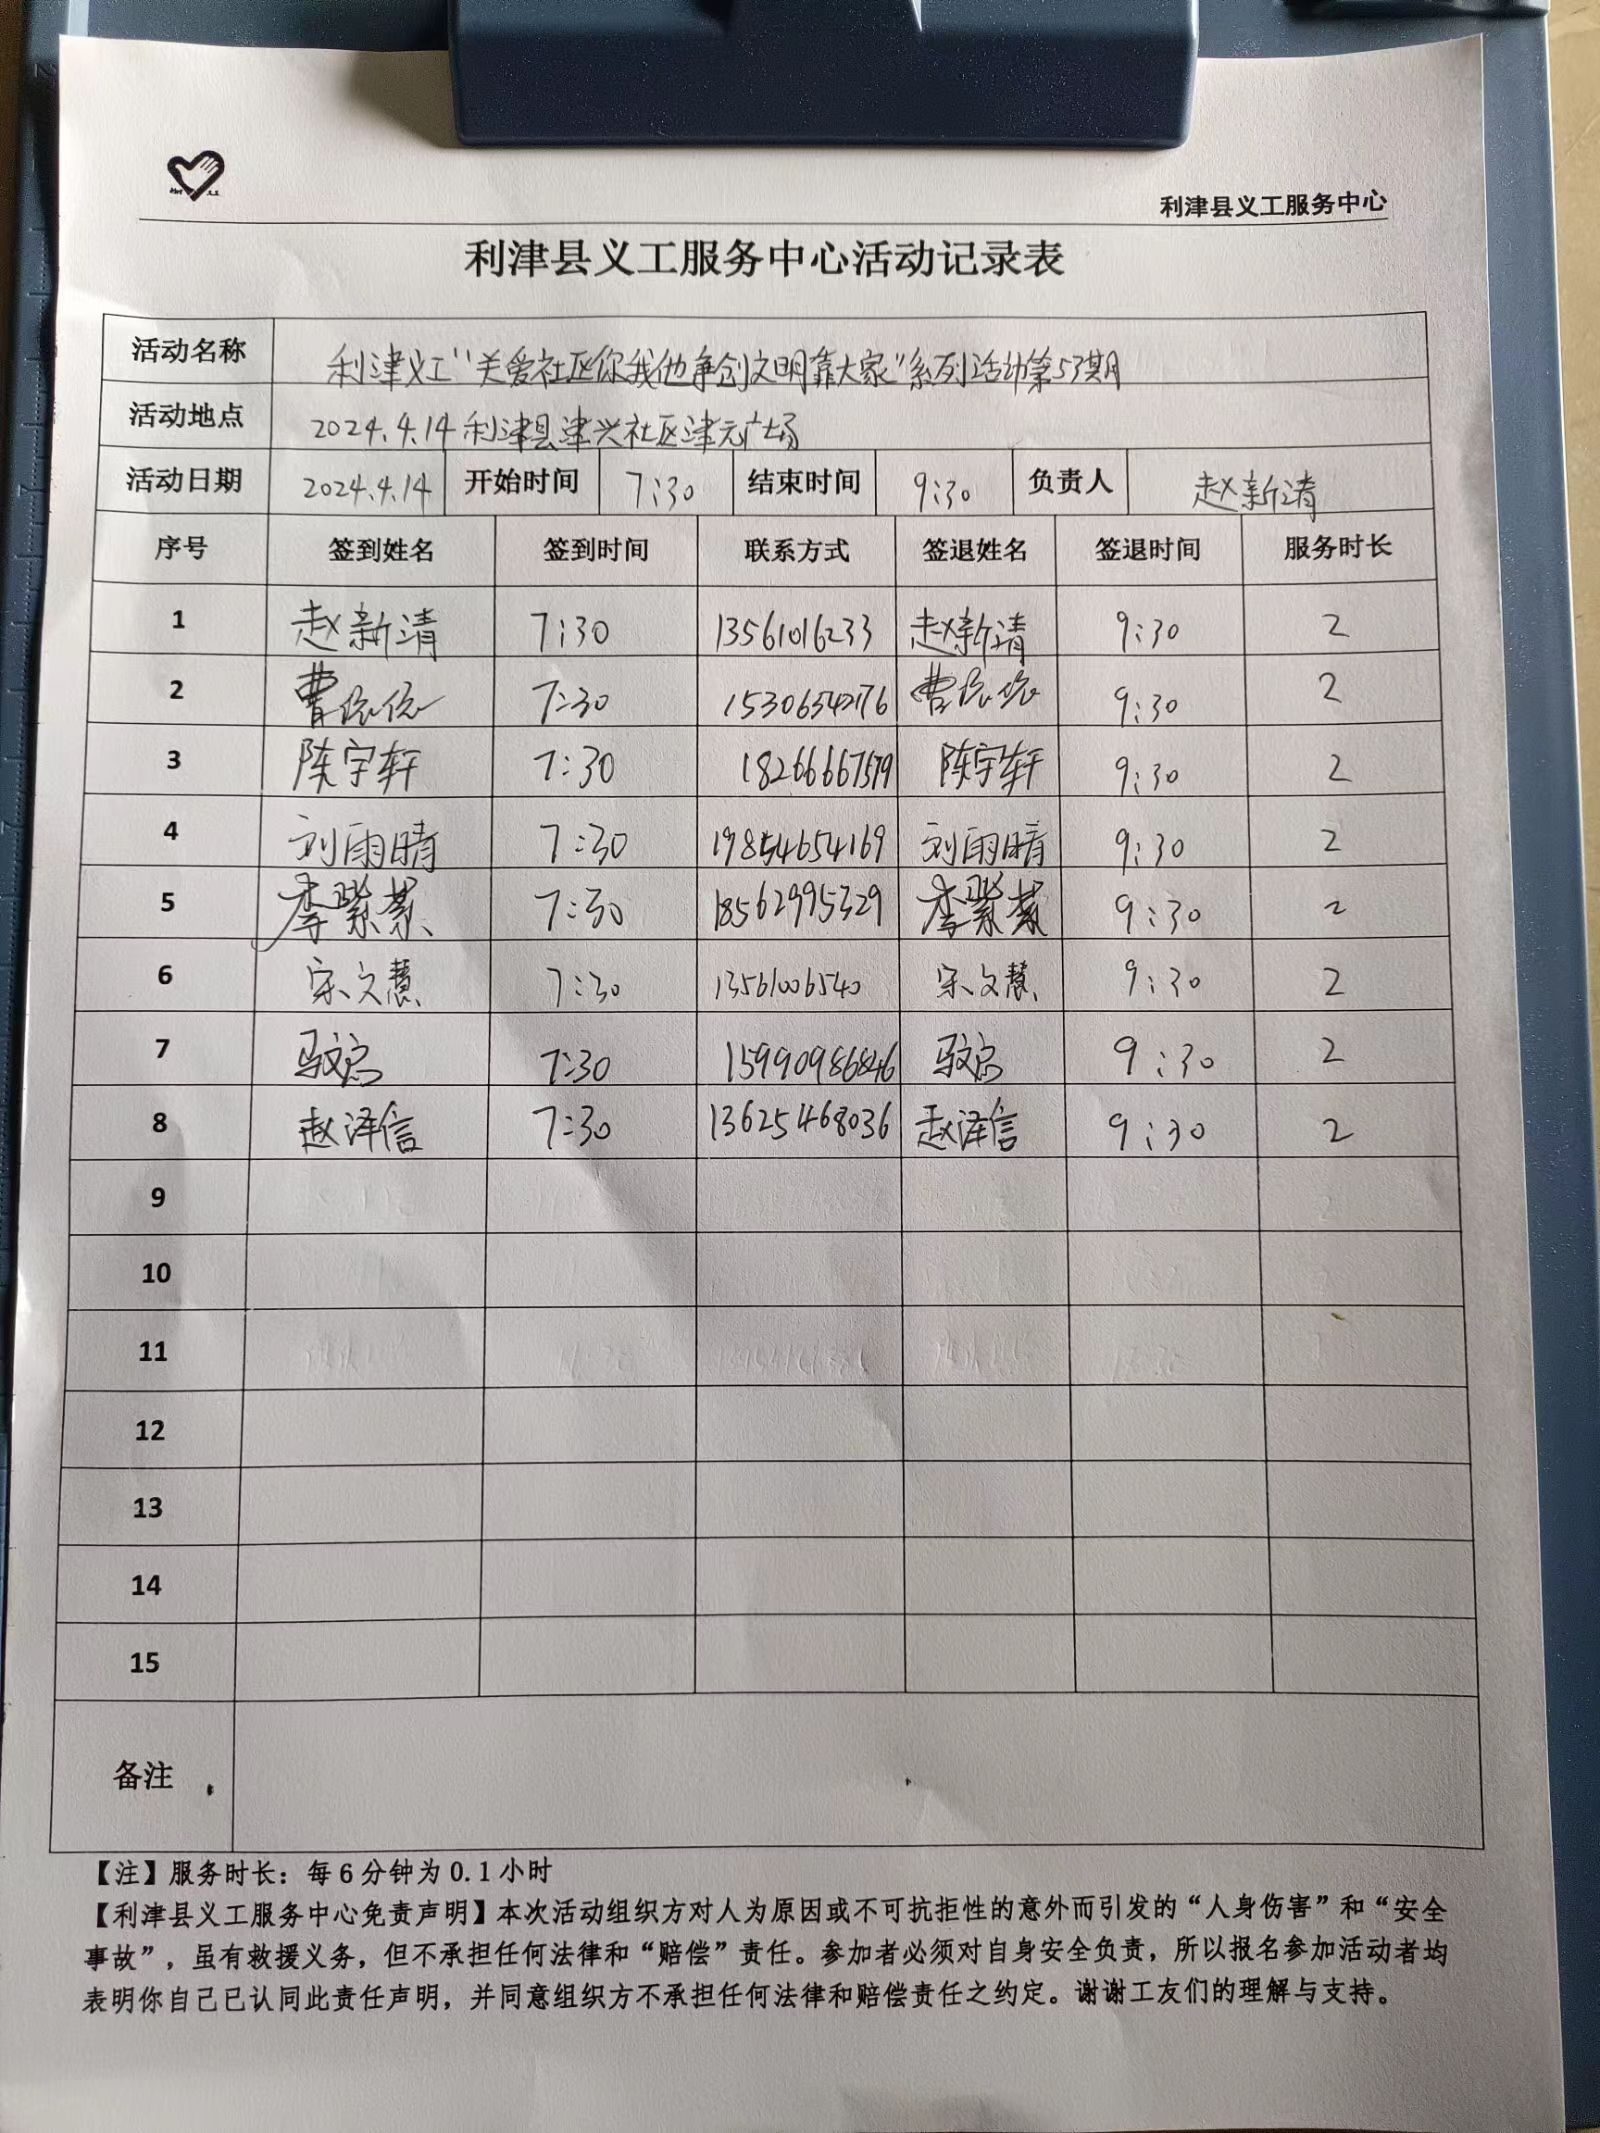 利津县义工服务中心
利津县义工服务中心活动记录表
活动名称 利津义工“关爱社区你我他争创文明靠大家”系列活动第53期
活动地点 2024.4.14利津县津兴社区津元广场
活动日期 2024.4.14 开始时间 7:30 结束时间 9:30 负责人 赵新清
序号 签到姓名 签到时间 联系方式 签退姓名 签退时间 服务时长
1 赵新清 7:30 13561016233 赵新清 9:30 2
2 曹依依 7:30 15306542176 曹依依 9:30 2
3 陈宇轩 7:30 18266667579 陈宇轩 9:30 2
4 刘雨晴 7:30 19854654169 刘雨晴 9:30 2
5 李紫萦 7:30 18562995329 李紫萦 9:30 2
6 宋文慧 7:30 13561006540 宋文慧 9:30 2
7 7:30 15990986846 9:30 2
8 赵泽信 7:30 13625468036 赵泽信 9:30 2
9
10
11
12
13
14
15
备注
【注】服务时长：每6分钟为0.1小时
【利津县义工服务中心免责声明】本次活动组织方对人为原因或不可抗拒性的意外而引发的“人身伤害”和“安全
事故”，虽有救援义务，但不承担任何法律和“赔偿”责任。参加者必须对自身安全负责，所以报名参加活动者均
表明你自己已认同此责任声明，并同意组织方不承担任何法律和赔偿责任之约定。谢谢工友们的理解与支持。